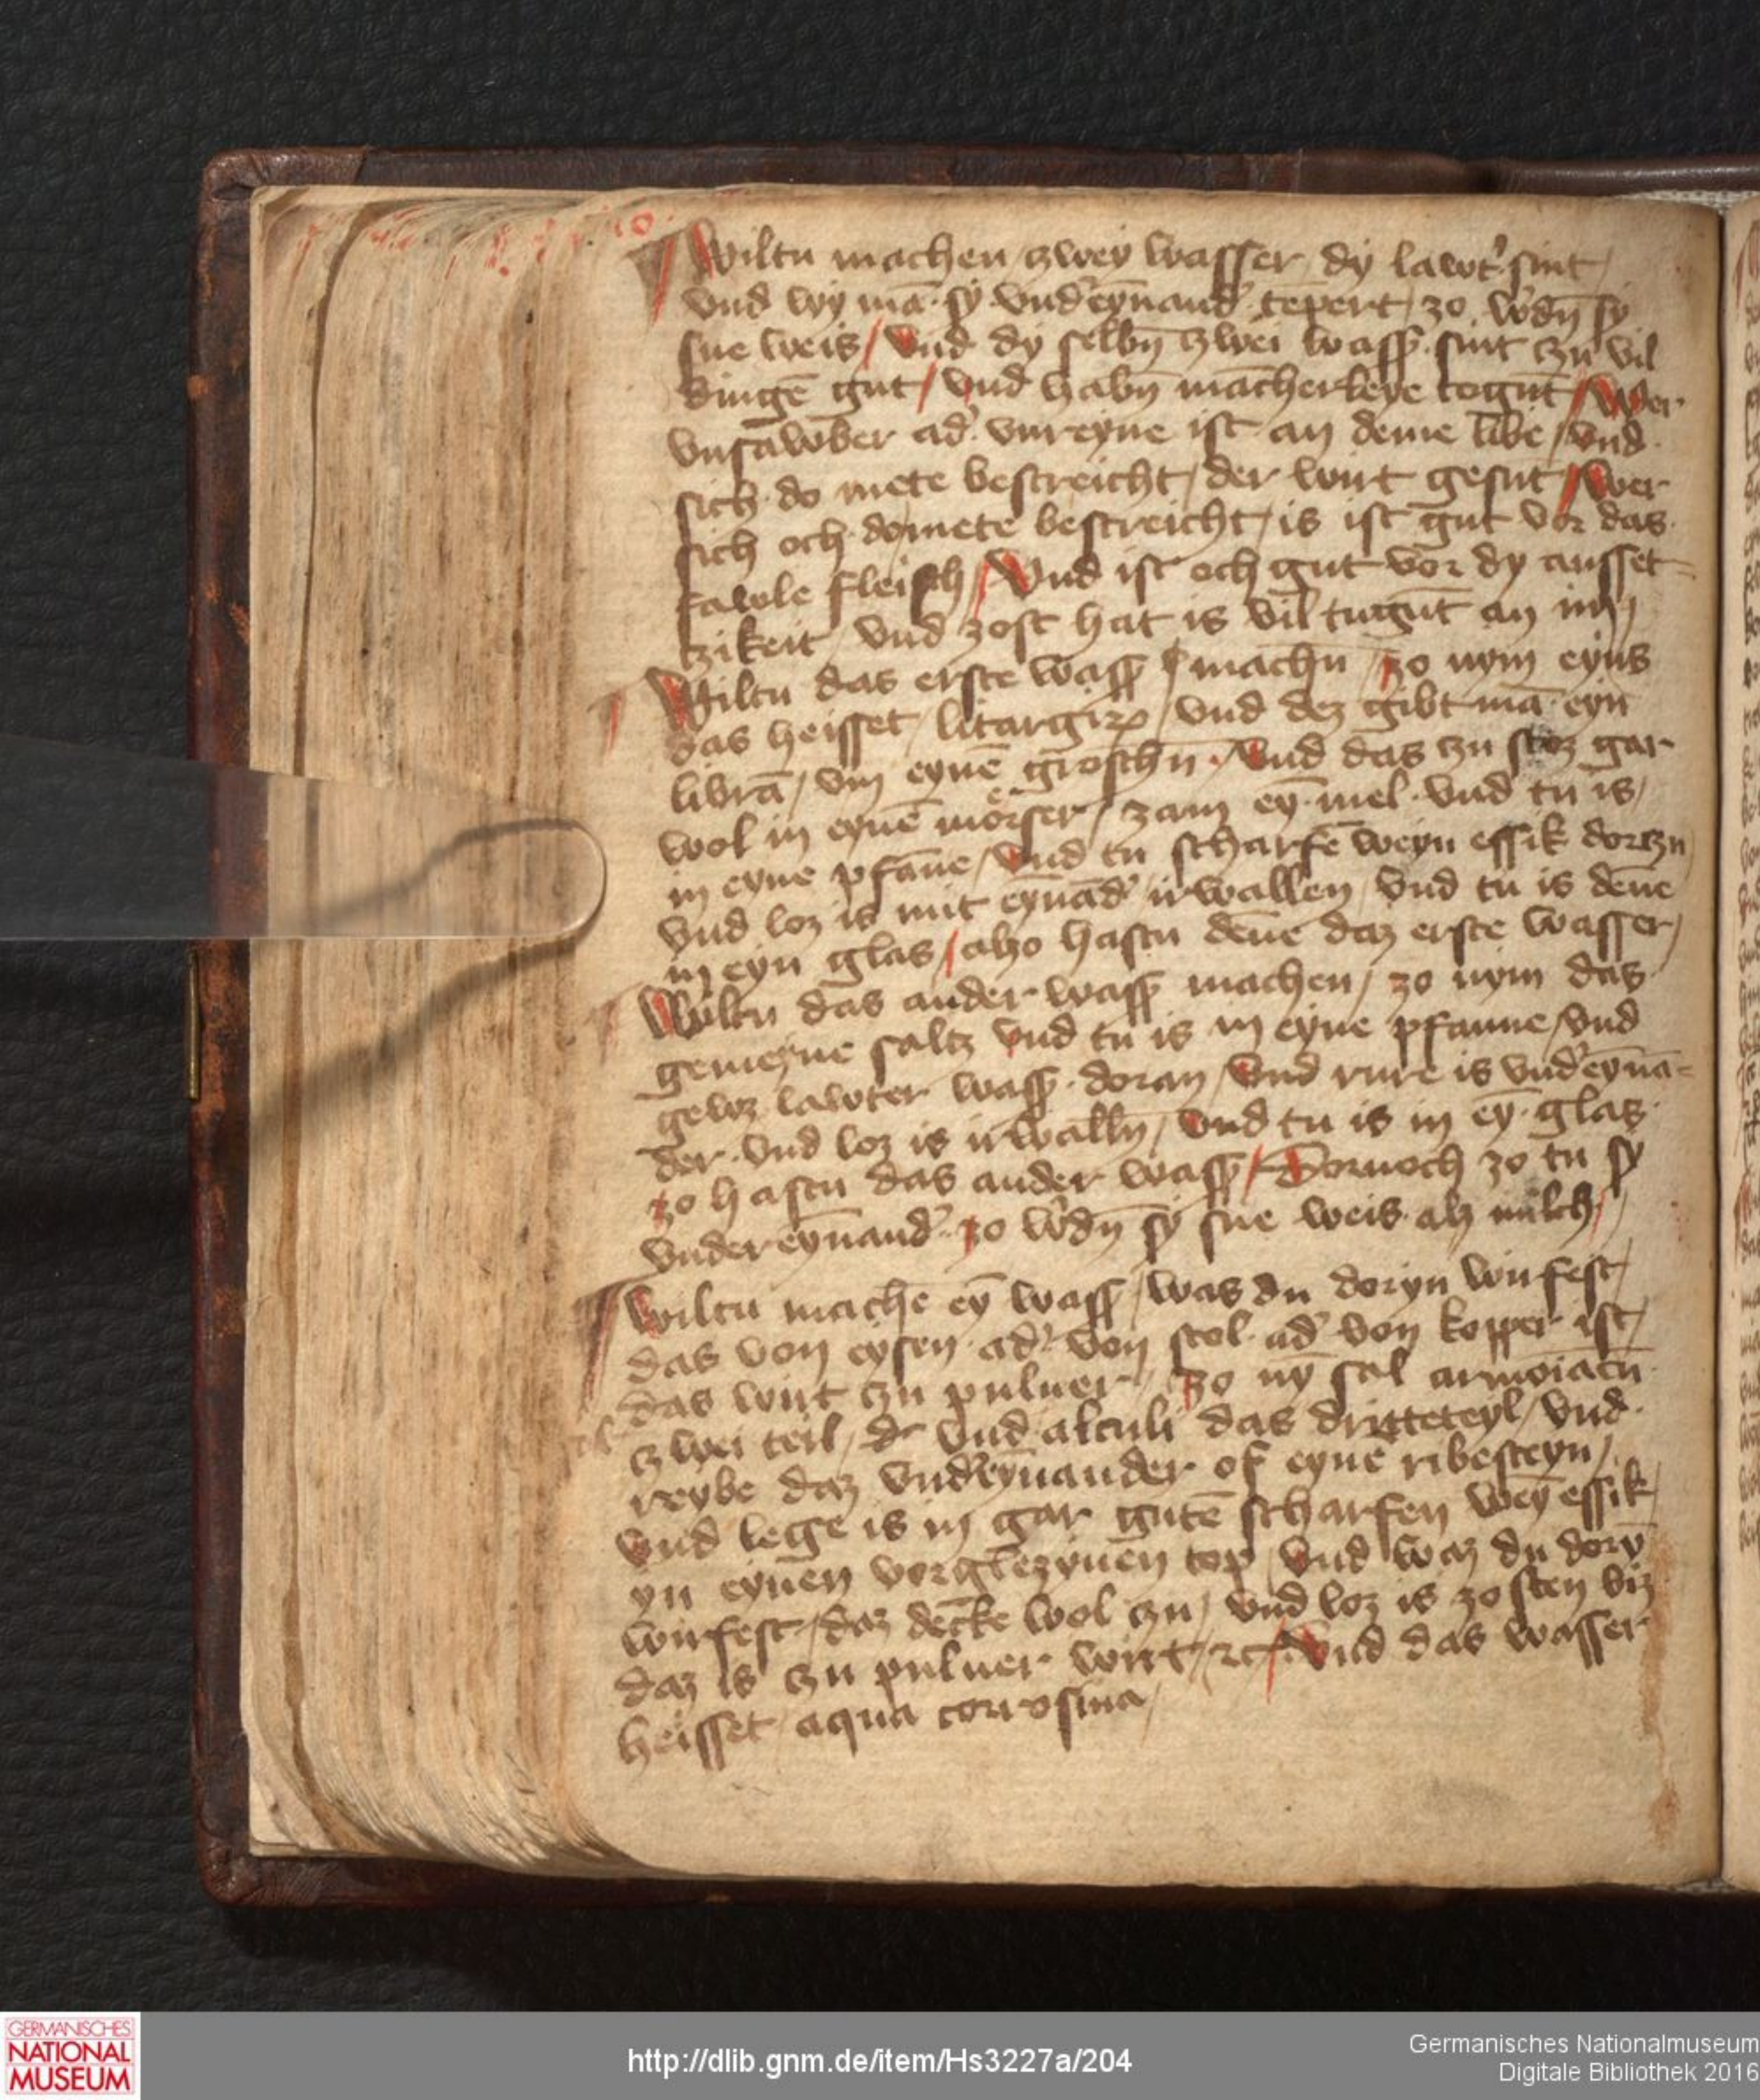 Wiltu machen / zwey wasser / dy lawt' sint /
vnd wy mā · sy vnd'eynand' tēpert / zo w'dn̄ sy
sne weis / Vnd dy selbn̄ zwei wass' · sint czu vil
dingē gut / Vnd habn̄ mācherleye togūt / Wer
vnsawber ad' vnreyne ist an deme libe / vnd
sich do mete bestreicht / der wirt gesūt / Wer
sich och domete bestreicht / is ist gut vor das
fawle fleisch / Vnd ist och gut vor dy ausset-
czikeit / vnd zost hat is vil tugūt an im /
Wiltu das erste wass' machn̄ / zo nym eyns
das heisset / litargirꝝ / vnd dez gibt mā eyn
librā / vm eynē groschn̄ · Vnd das czu stoz gar
wol in eynē mörser / zam ey̅ mel · vnd tu is /
in eyne pfāne / Vnd tu scharfē weyn essik dorczu
vnd loz is mit eynād' irwallen / vnd tu is dēne
in eyn glas / alzo hastu dēne daz erste wasser /
Wiltu das ander wass' machen / zo nym das
gemeyne saltz vnd tu is in eyne pfanne / vnd
gewz lawter wass' · doran / Vnd rure is vnd'eynā-
der · vnd loz is irwalln̄ / Vnd tu is in ey̅ · glas ·
zo hastu das ander wass' / Dornoch zo tu sy
vnder eynand' zo w'dn̄ sy sne weis · alz milch /
Wiltu machē ey̅ wass' / was du doryn wirfest /
das von eysen · ad' von stol · ad' von kopper ist /
das wirt czu puluer / zo ny̅ sal armoiacū
czwei teil / vnd alculi das dritteteyl / vnd
reybe daz vnd'eynander of eynē ribesteyn /
vnd lege is in gar gutē scharfen wey̅ essik /
yn eynēn vorglezynēn top / Vnd waz du dory̅
wirfest / daz decke wol czu / vnd loz is zo sten biz
daz is czu puluer wirt / ꝛc / Vnd das wasser
heisset aqua corrosiua /
GERMANISCHES
NATIONAL
MUSEUM
http://dlib.gnm.de/item/Hs3227a/204
Germanisches Nationalmuseum
Digitale Bibliothek 2016